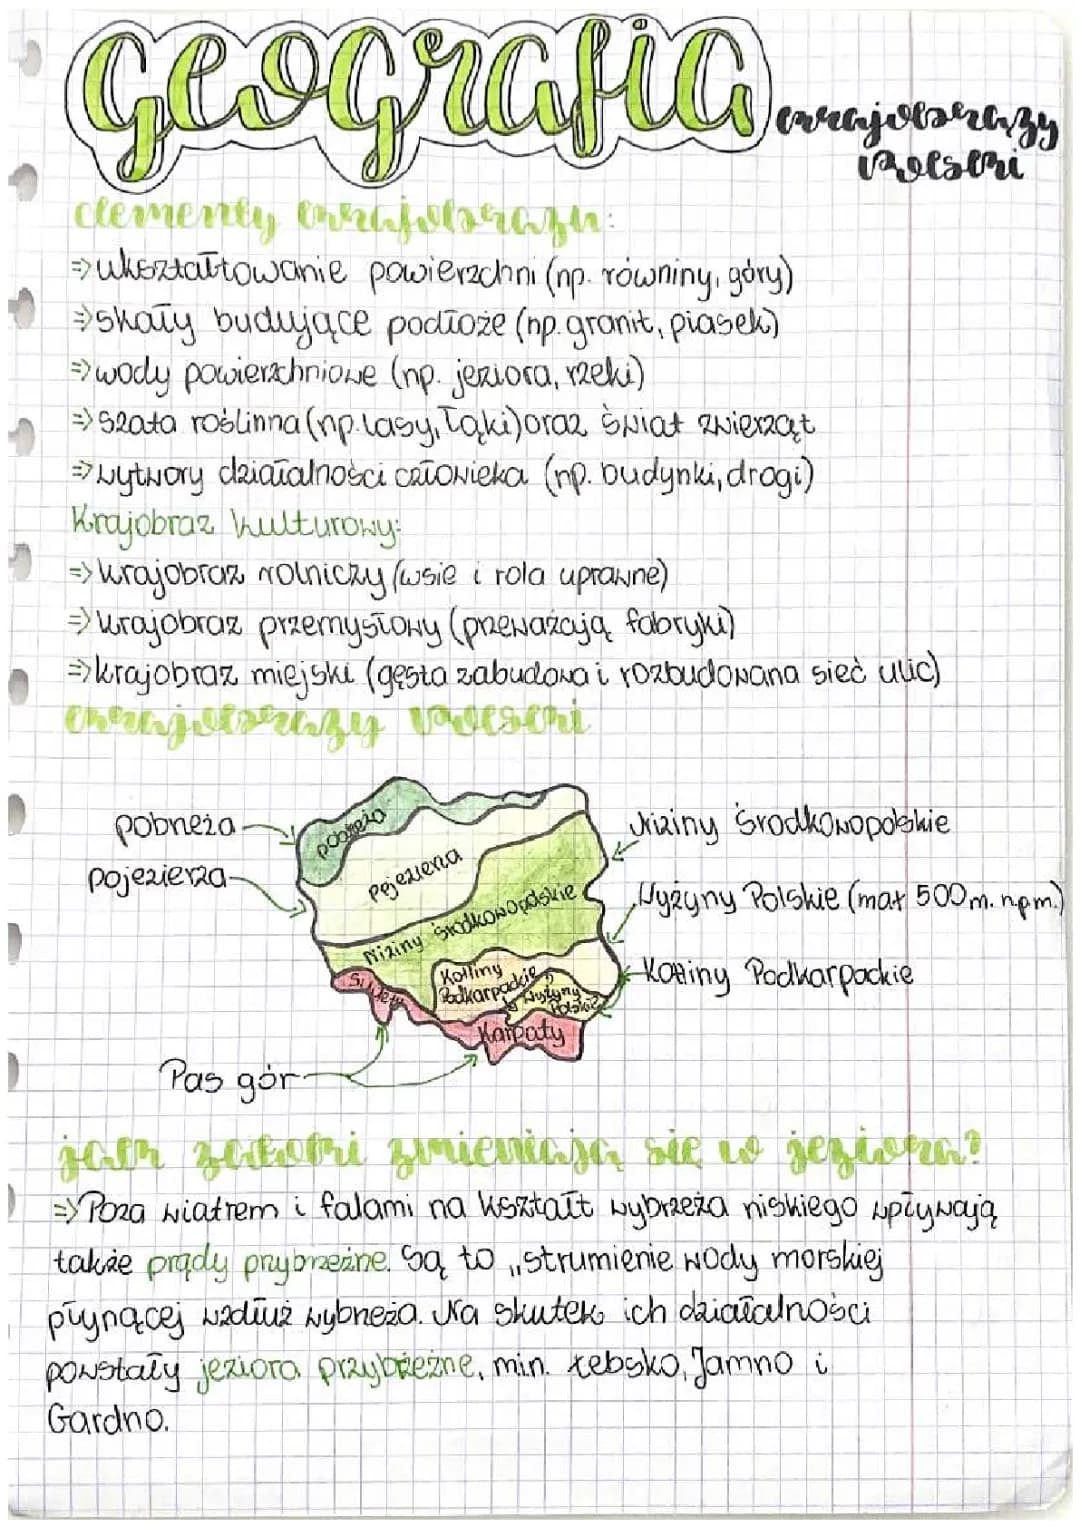 Geografia
krajobrazy
Polski
elementy krajobrazu:
⇒ukształtowanie powierzchni (np. równiny, góry)
⇒skały budujące podłoże (np. granit, piasek)
⇒wody powierzchniowe (np. jeziora, rzeki)
⇒szata roślinna (np. lasy, łąki) oraz świat zwierząt
⇒wytwory działalności człowieka (np. budynki, drogi)
Krajobraz kulturowy:
⇒krajobraz rolniczy (wsie i rola uprawne)
⇒krajobraz przemysłowy (przeważają fabryki)
⇒krajobraz miejski (gęsta zabudowa i rozbudowana sieć ulic)
krajobrazy Polski
pobrzeża
pojezierza
pobrzeża
Pojezierza
Niziny środkowopolskie
Sudety
Kotliny
Podkarpackie
Wyżyny
Polskie
Karpaty
Niziny Środkowopolskie
Wyżyny Polskie (max 500 m. n.p.m.)
Kotliny Podkarpackie
Pas gór
jak zatoki zmieniają się w jeziora?
⇒Poza wiatrem i falami na kształt wybrzeża niskiego wpływają
także prądy przybrzeżne. Są to „strumienie wody morskiej
płynącej wzdłuż wybrzeża. Na skutek ich działalności
powstały jeziora przybrzeżne, min. Łebsko, Jamno i
Gardno.